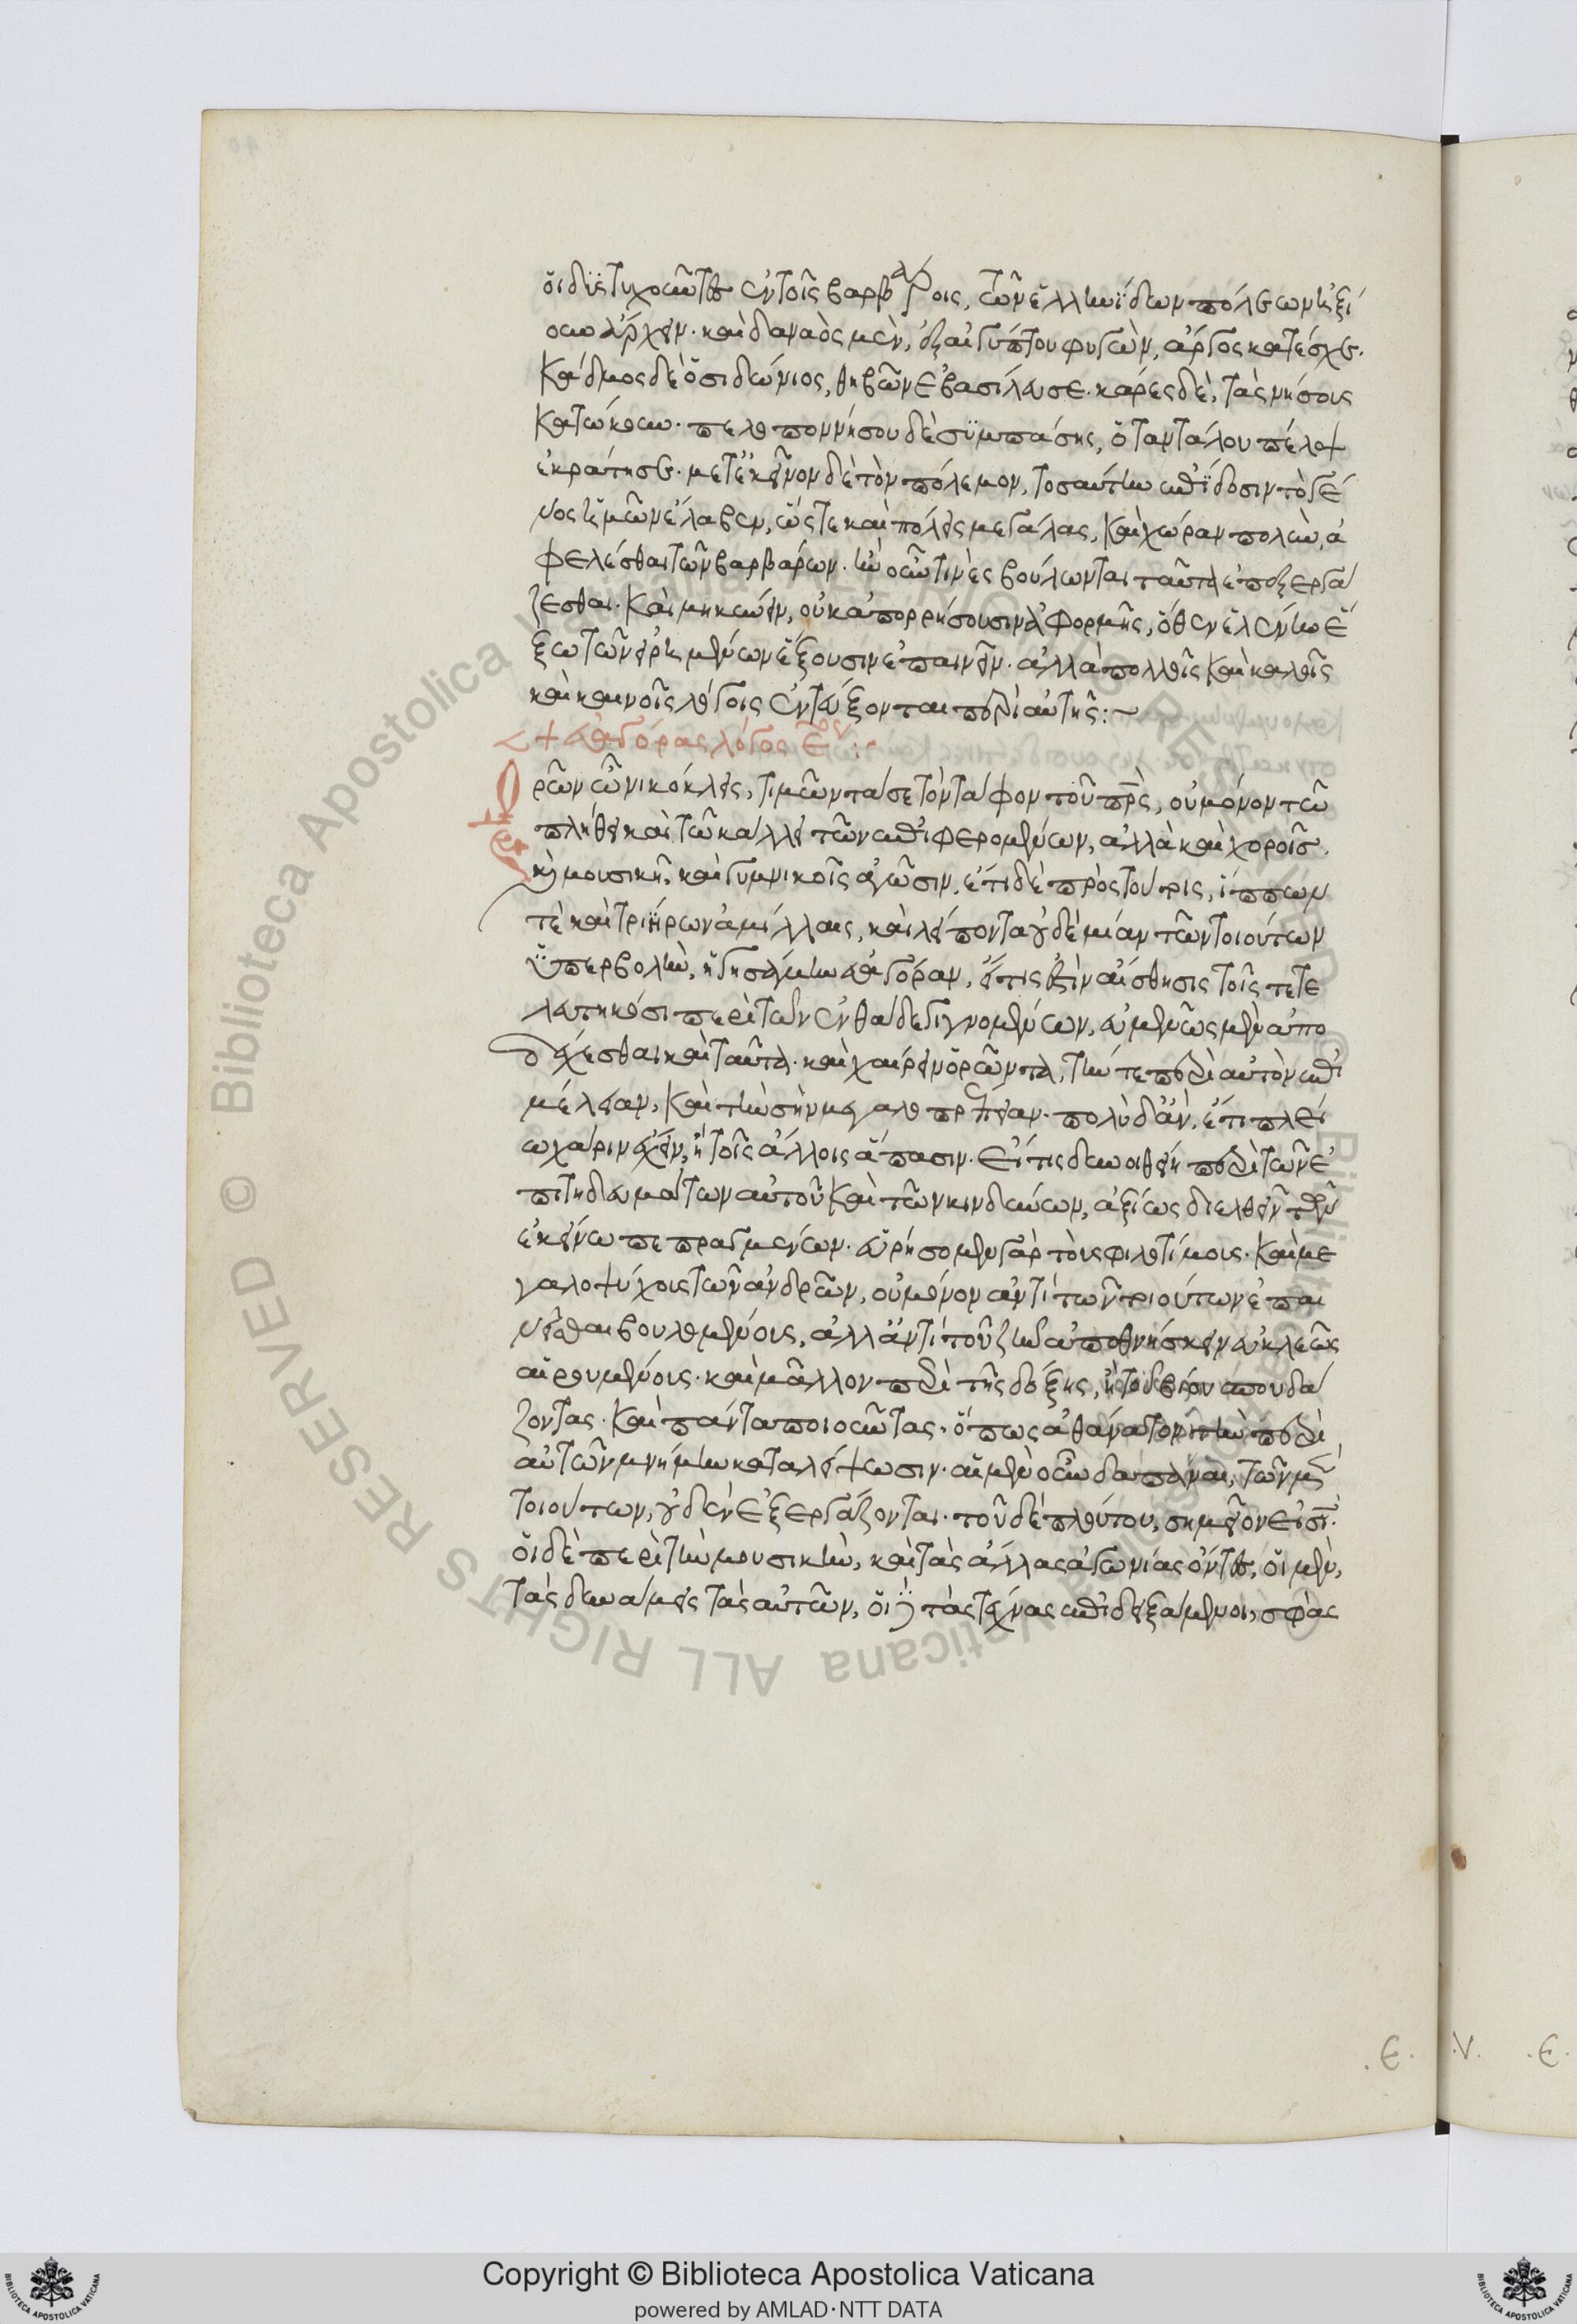 οἱ δυστυχοῦντες ἐν τοῖς βαρβάροις, τῶν ἑλληνίδων πόλεων ἠξί
ουν ἄρχειν. καὶ δαναὸς μὲν, ἐξ αἰγύπτου φυγὼν, ἄργος κατέσχε.
Κάδμος δὲ ὁ σιδώνιος, θηβῶν ἐβασίλευσε. κᾶρες δὲ, τὰς νήσους
κατώκουν. πελοποννήσου δὲ συμπάσης, ὁ ταντάλου πέλοψ
ἐκράτησε. μετ' ἐκεῖνον δὲ τὸν πόλεμον, τοσαύτην ἐπίδοσιν τὸ γέ
νος ἡμῶν ἔλαβεν, ὥστε καὶ πόλεις μεγάλας, καὶ χώραν πολὴν, ἀ
φελέσθαι τῶν βαρβάρων. ἢν οὖν τινὲς βούλωνται ταῦτα ἐπεξεργά
ζεσθαι. καὶ μηκύνειν, οὐκ ἀπορρήσουσιν ἀφορμῆς, ὅθεν ἑλένην ἔ
ξω τῶν εἰρημένων ἕξουσιν ἐπαινεῖν. ἀλλὰ πολλοῖς καὶ καλοῖς
καὶ καινοῖς λόγοις ἐντεύξονται περὶ αὐτῆς:~
+ εὐαγόρας λόγος
ρῶν ὦ νικόκλεις, τιμῶντά σε τὸν τάφον τοῦ πρς, οὐ μόνον τῶ
πλήθει καὶ τῶ κάλλει τῶν ἐπιφερομένων, ἀλλὰ καὶ χοροῖς.
κ μουσικῆ, καὶ γυμνικοῖς ἀγῶσιν, ἔτι δὲ πρὸς τούτοις, ἵππων
τὲ καὶ τριήρων ἁμίλλαις, καὶ λείποντα οὐδεμίαν τῶν τοιούτων
ὑπερβολὴν, ἡγησάμην εὐαγόραν, εἴ τις ἐστὶν αἴσθησις τοῖς τετε
λευτηκόσι περὶ τῶν ἐνθάδε γιγνομένων, εὐμενῶς μὲν ἀπο
δέχεσθαι καὶ ταῦτα. καὶ χαίρειν ὁρῶντα, τήν τε περὶ αὐτὸν ἐπι
μέλειαν, καὶ τὴν σὴν μεγαλοπρέπειαν. πολὺ δ' ἂν, ἔτι πλεί
ω χάριν ἔχειν, ἢ τοῖς ἄλλοις ἅπασιν. εἴ τις δυνηθείη περὶ τῶν ἐ
πιτηδευμάτων αὐτοῦ καὶ τῶν κινδύνων, ἀξίως διελθεῖν τῶν
ἐκείνω πεπραγμένων. εὑρήσομεν γὰρ τοὺς φιλοτίμους. καὶ με
γαλοψύχους τῶν ἀνδρῶν, οὐ μόνον ἀντὶ τῶν τοιούτων ἐπαι
νεῖσθαι βουλομένους, ἀλλ' ἀντὶ τοῦ ζῆν ἀποθνήσκειν εὐκλεῶς
αἱρουμένους. καὶ μᾶλλον περὶ τῆς δόξης, ἢ τοῦ βίου σπουδά
ζοντας. καὶ πάντα ποιοῦντας. ὅπως ἀθάνατον τὴν περὶ
αὐτῶν μνήμην καταλείψωσιν. αἱ μὲν οὖν δαπάναι, τῶν μὲν
τοιούτων, οὐδὲν ἐξεργάζονται. τοῦ δὲ πλούτου, σημεῖον εἰσί.
οἱ δὲ περὶ τὴν μουσικὴν, καὶ τὰς ἄλλας ἀγωνίας ὄντες, οἱ μὲν,
τὰς δυνάμεις τὰς αὐτῶν, οἱ δὲ τὰς τέχνας ἐπιδειξάμενοι, σφᾶς
.ε. .ν. .ε.
© Biblioteca Apostolica Vaticana ALL RIGHTS RESERVED
Copyright © Biblioteca Apostolica Vaticana
powered by AMLAD·NTT DATA